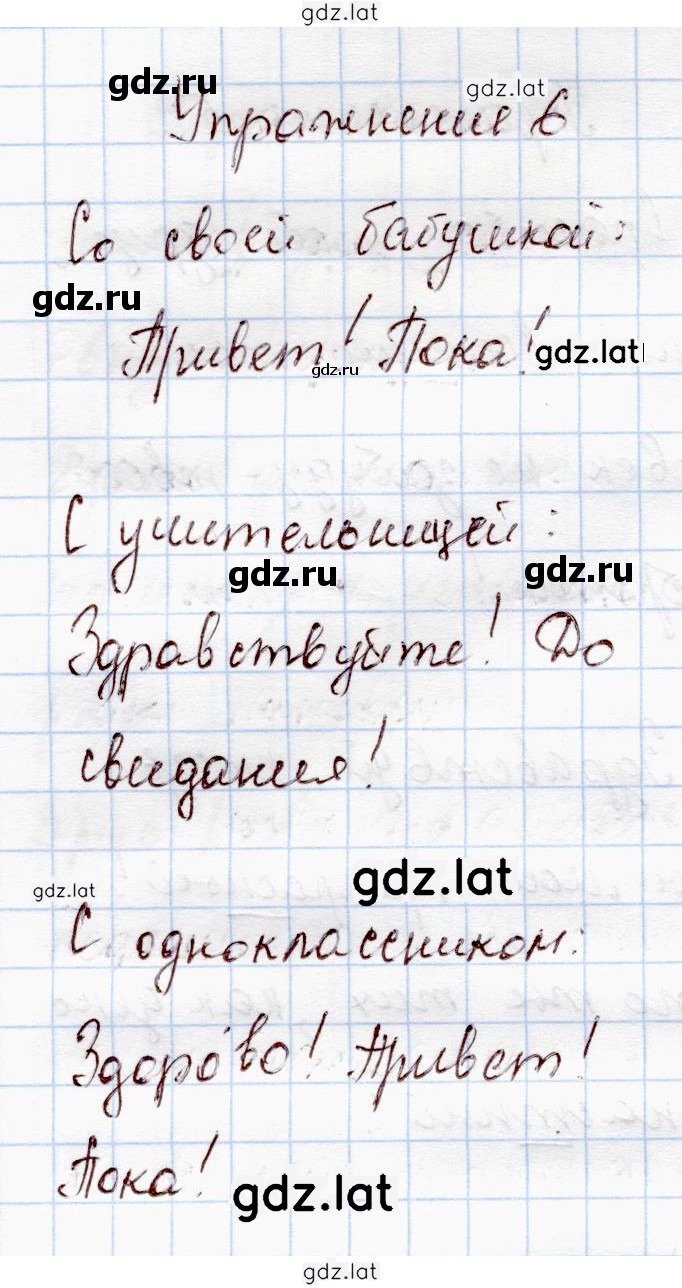 gdz.lat
gdz.ru
gdz.lat
Упражнение 6
Со своей бабушкой:
gdz.ru
Привет! Пока!
gdz.lat
gdz.ru
С учительницей:
gdz.ru
gdz.ru
Здравствуйте! До
свидания!
gdz.lat
gdz.lat
С одноклассником:
Здоро́во! Привет!
Пока!
gdz.lat
gdz.lat